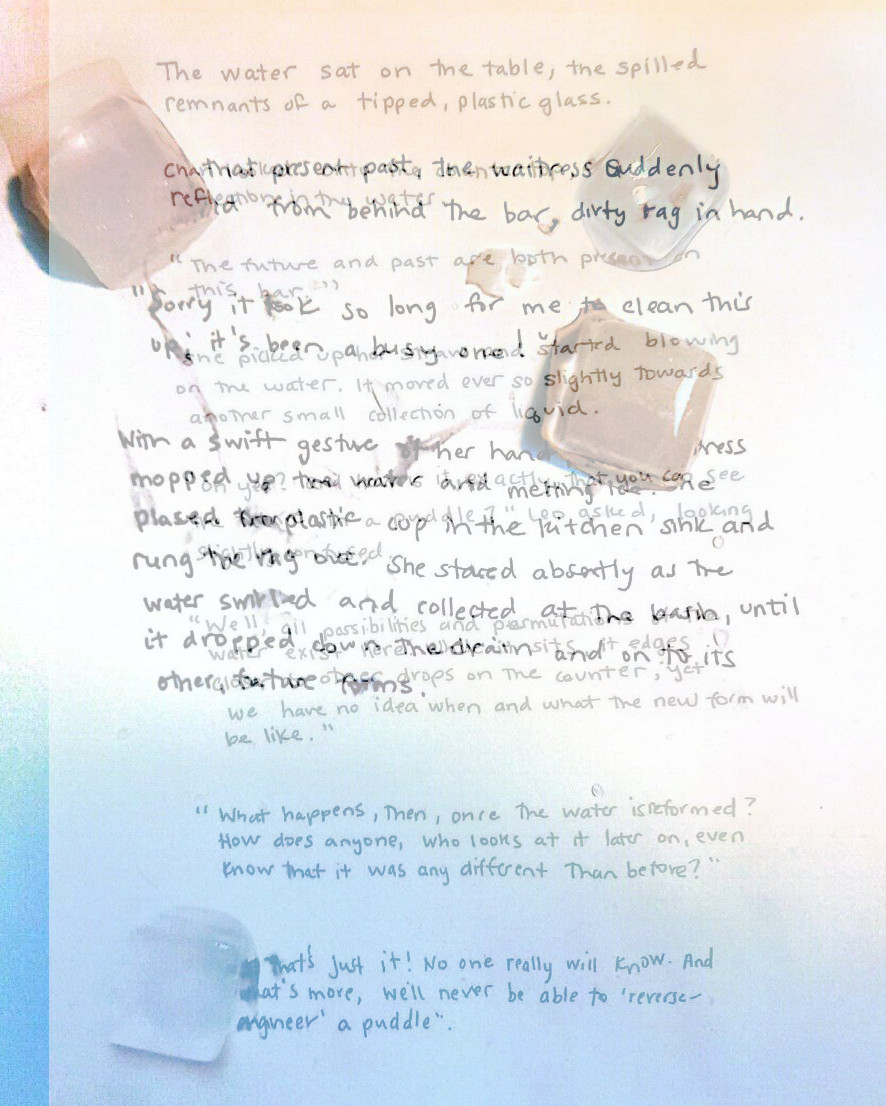 The water sat on the table, the spilled
remnants of a tipped, plastic glass.
that present past, the waitress suddenly
from behind the bar, dirty rag in hand.
reflection in the water
"The future and past are both present on
this bar."
"Sorry it took so long for me to clean this
up, it's been a busy one!"
she picked up her straw and started blowing
on the water. It moved ever so slightly towards
another small collection of liquid.
With a swift gesture of her hand
mopped up the water and melting ice. She
exactly that you can see
plased plastic cop in the kitchen sink and
a puddle?" asked, looking
rung the rag out. She stared absently as the
slightly confused
water swirled and collected at the basin, until
"Well, all possibilities and permutations
it dropped down the drain and on to its
water exist sits, it edges
other, future forms.
drops on the counter, yet
we have no idea when and what the new form will
be like."
"What happens, then, once the water is reformed?
How does anyone, who looks at it later on, even
know that it was any different than before?"
That's just it! No one really will know. And
what's more, we'll never be able to 'reverse-
engineer' a puddle".